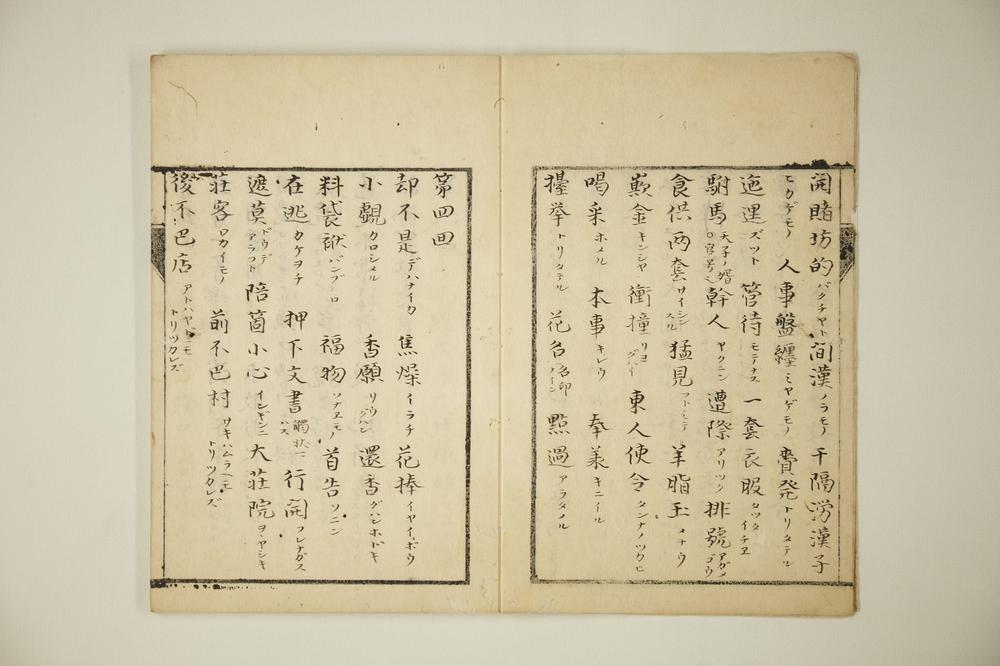 開賭坊的 バクチヤド 間漢 ノラモノ 干隔澇漢子
モカゲモノ 人事盤纏 ミヤゲモノ 賷発 トリタテル
迤逞 ズツト 管待 モテナス 一套衣服 タツタイチヱ
駙馬 天子ノ婿ノ官号也 幹人 ヤクニン 遭際 アリツク 排號 アガメゴウ
食供両套 サイシンスル 猛見 フトミテ 羊脂玉 メナウ
歎金 キンシヤ 衝撞 リヨグハイ 東人使令 タンナノツカヒ
喝采 ホメル 本事 キレウ 奉羕 キニイル
擡挙 トリタテル 花名 名印ノイン 點過 アラタメル
第四回
却不是 デハナイカ 焦燥 イラチ 花捧 イヤイヽボウ
小覻 カロシメル 香願 リウグハン 還香 グハンホドキ
料袋袱 バンブロ 福物 ソナヱモノ 首告 ソニン
在逃 カケヲチ 押下文書 觸状ニハス 行開 フレナガス
遮莫 ドウデアラフト 陪箇小心 インギンニ 大莊院 ヲヽヤシキ
莊客 ワカイモノ 前不巴村 サキハムラヘモトリツカレズ
後不巴店 アトハヤドニモトリツカレズ